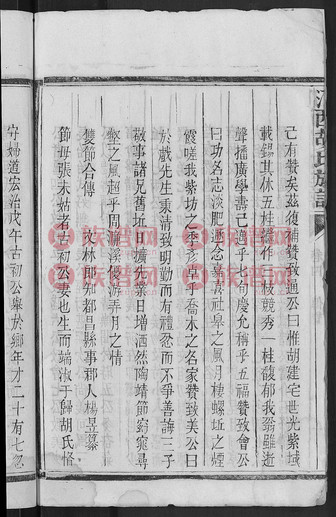 江西胡氏族譜
己有贊矣茲復補贊致遇公曰惟胡建宅世光紫域
載錫其休五桂濟作一枝競秀一桂馥郁我翁雖逝
聲播廣學壽己過乎七旬慶允稱乎五福贊致會公
曰功名志淡肥遯念嘉社皋之風月棲螺
霞嗟我紫坊之孝彥卓乎喬木之名家贊致美公曰
於戲先生秉清致明勤而有禮忿而不爭善誨三子
敬事諸兄舊址日擴先業日增洒然陶靖節窈窕尋
壑之風超乎周濂溪優游弄月之情
雙節合傳
文林郎知都昌縣事郡人楊昱纂
節母張未姑者古初公妻也生而端淑于歸胡氏恪
守婦道宏治戊午古初公舉於鄉年才二十有七忽